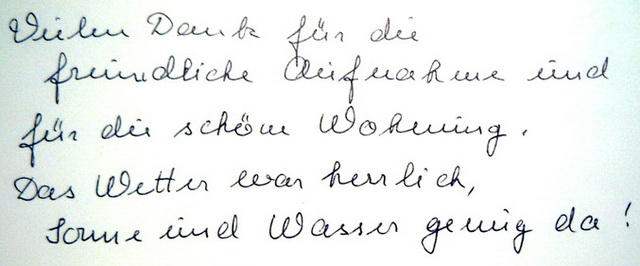 Vielen Dank für die
freundliche Aufnahme und
für die schöne Wohnung.
Das Wetter war herrlich,
Sonne und Wasser genug da!